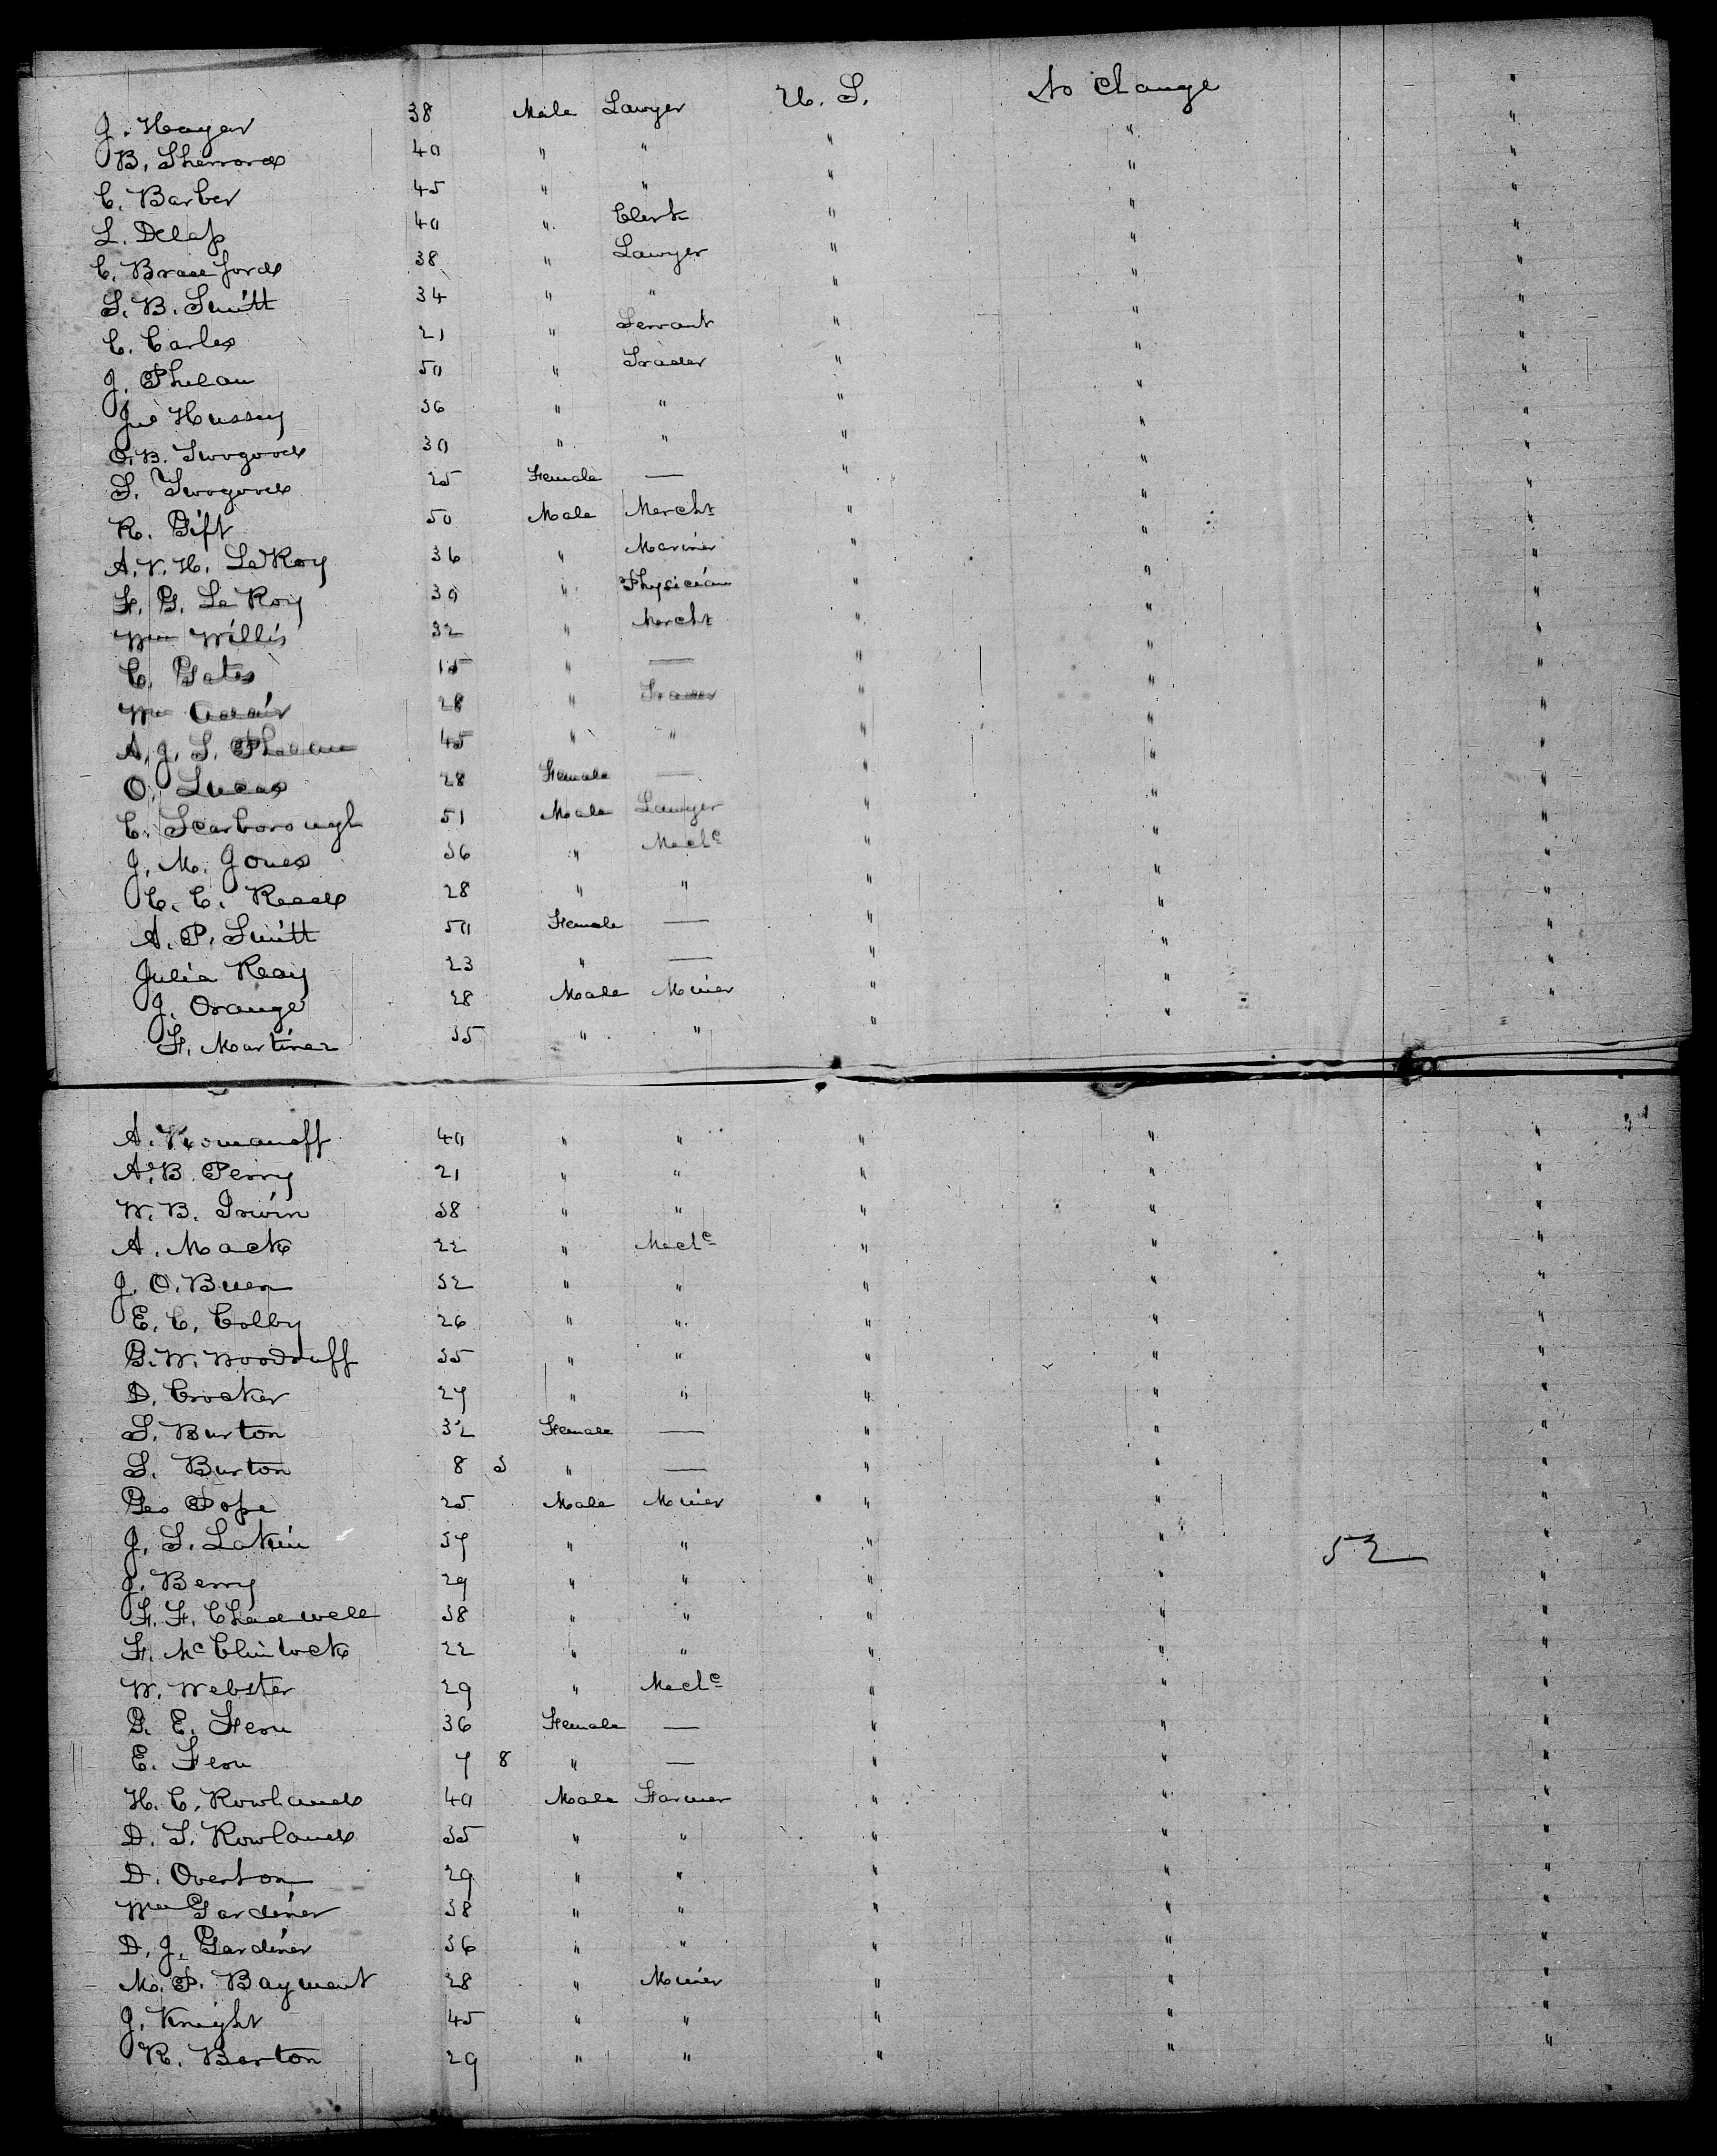 J. Hagar 38 Male Lawyer U. S. No Change "
B. Sherrord 40 " " " " "
C. Barber 45 " " " " "
L. Delap 40 " Clerk " " "
C. Bradford 38 " Lawyer " " "
S. B. Smith 34 " " " " "
C. Carles 21 " Servant " " "
J. Phelan 50 " Trader " " "
Jno Hussey 36 " " " " "
O. B. Twogood 30 " " " " "
S. Twogood 25 Female — " " "
R. Gift 50 Male Mercht " " "
A. V. H. LeRoy 36 " Mariner " " "
F. G. Le Roy 30 " Physician " " "
Wm Willis 32 " Mercht " " "
C. Gates 15 " — " " "
Wm Adair 28 " Trader " " "
A. J. S. Phelan 45 " " " " "
O. Lucas 28 Female — " " "
C. Scarborough 51 Male Lawyer " " "
J. M. Jones 36 " Mechc " " "
C. C. Reed 28 " " " " "
A. P. Smith 50 Female — " " "
Julia Reay 23 " — " " "
J. Orange 28 Male Miner " " "
F. Martinez 35 " " " " "
A. Romanoff 40 " " " " "
A. B. Perry 21 " " " " "
W. B. Irwin 38 " " " " "
A. Mack 22 " Mechc " " "
J. O. Buen 32 " " " " "
E. C. Colby 26 " " " " "
G. W. Woodruff 35 " " " " "
D. Crocker 27 " " " " "
S. Burton 32 Female — " " "
S. Burton 8 3 " — " " "
Geo Pope 25 Male Miner " " "
J. S. Lakin 37 " " " " 52 "
J. Berry 29 " " " " "
F. F. Chadwell 38 " " " " "
F. McClintock 22 " " " " "
W. Webster 29 " Mechc " " "
G. E. Fern 36 Female — " " "
E. Fern 7 8 " — " " "
H. C. Rowland 40 Male Farmer " " "
D. S. Rowland 35 " " " " "
D. Overton 29 " " " " "
Wm Gardiner 38 " " " " "
D. J. Gardiner 36 " " " " "
M. P. Bayment 28 " Miner " " "
J. Knight 45 " " " " "
R. Barton 29 " " " " "